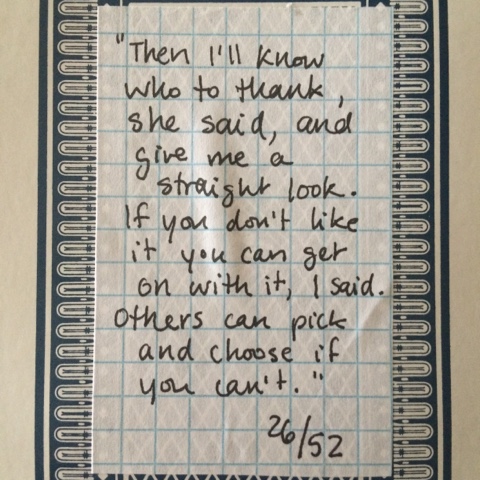 "Then I'll know
who to thank,
she said, and
give me a
straight look.
If you don't like
it you can get
on with it, I said.
Others can pick
and choose if
you can't."
26/52